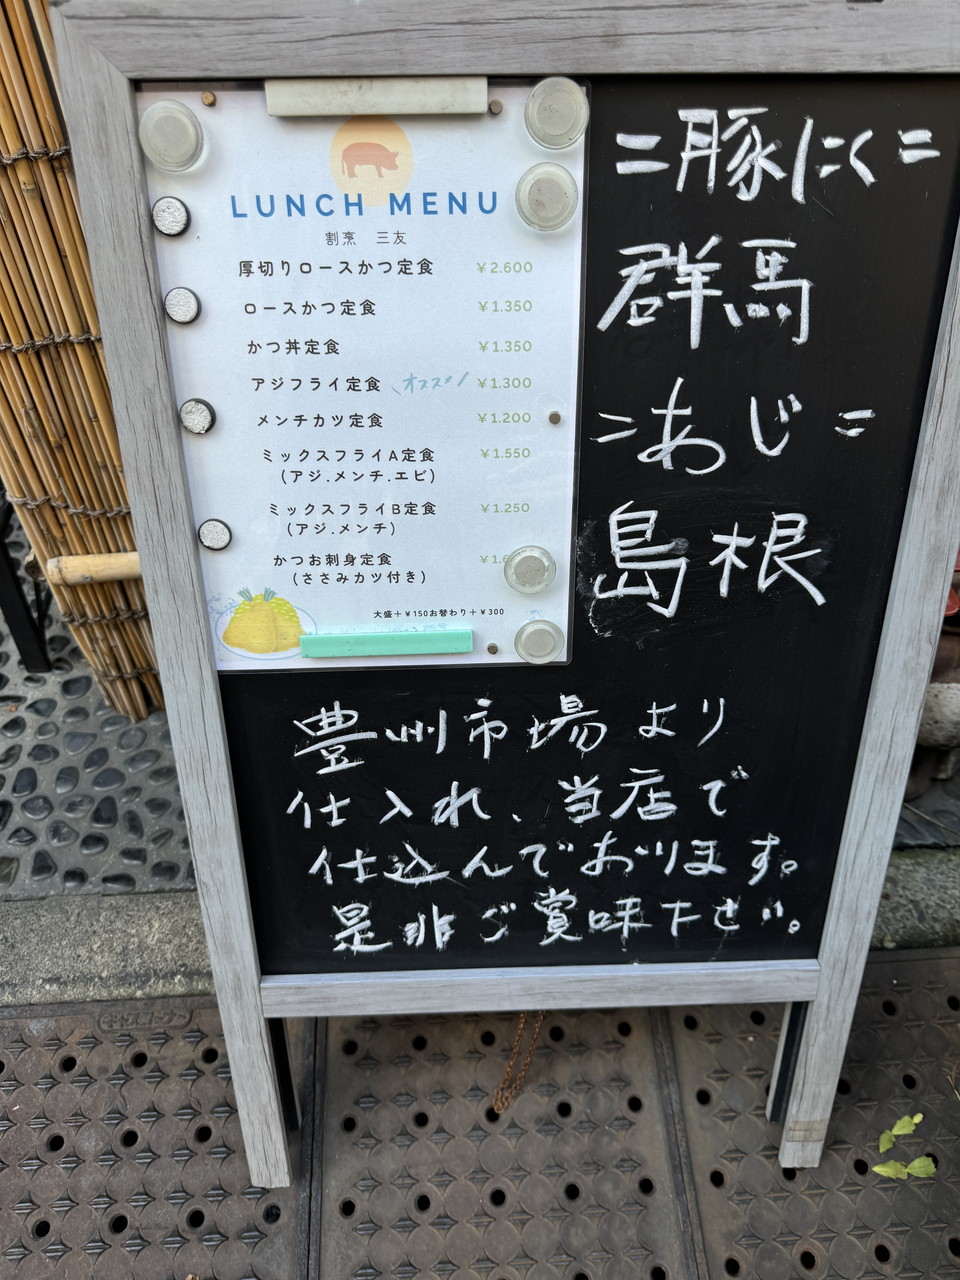 LUNCH MENU
割烹 三友
厚切りロースかつ定食 ¥2.600
ロースかつ定食 ¥1.350
かつ丼定食 ¥1.350
アジフライ定食 オススメ! ¥1.300
メンチカツ定食 ¥1.200
ミックスフライA定食 ¥1.550
(アジ.メンチ.エビ)
ミックスフライB定食 ¥1.250
(アジ.メンチ)
かつお刺身定食
(ささみカツ付き)
大盛+¥150お替わり+¥300
=豚にく=
群馬
=あじ=
島根
豊州市場より
仕入れ、当店で
仕込んでおります。
是非ご賞味下さい。